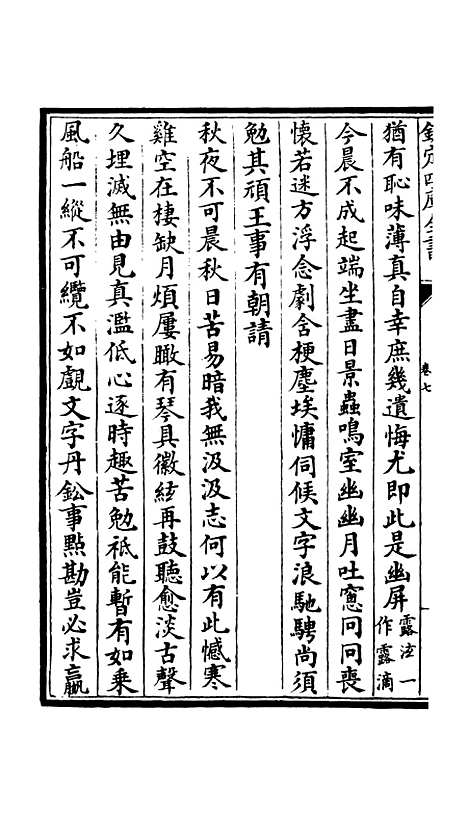 欽定四庫全書 卷七
猶有恥味薄真自幸庶幾遺悔尤即此是幽屏露泫一作露滴
今晨不成起端坐盡日景蟲鳴室幽幽月吐窻冏冏喪
懷若迷方浮念劇含梗塵埃慵伺候文字浪馳騁尚須
勉其頑王事有朝請
秋夜不可晨秋日苦易暗我無汲汲志何以有此憾寒
雞空在棲缺月煩屢瞰有琴具徽絃再鼓聽愈淡古聲
久埋滅無由見真濫低心逐時趣苦勉祗能暫有如乘
風船一縱不可纜不如覷文字丹鈆事點勘豈必求贏